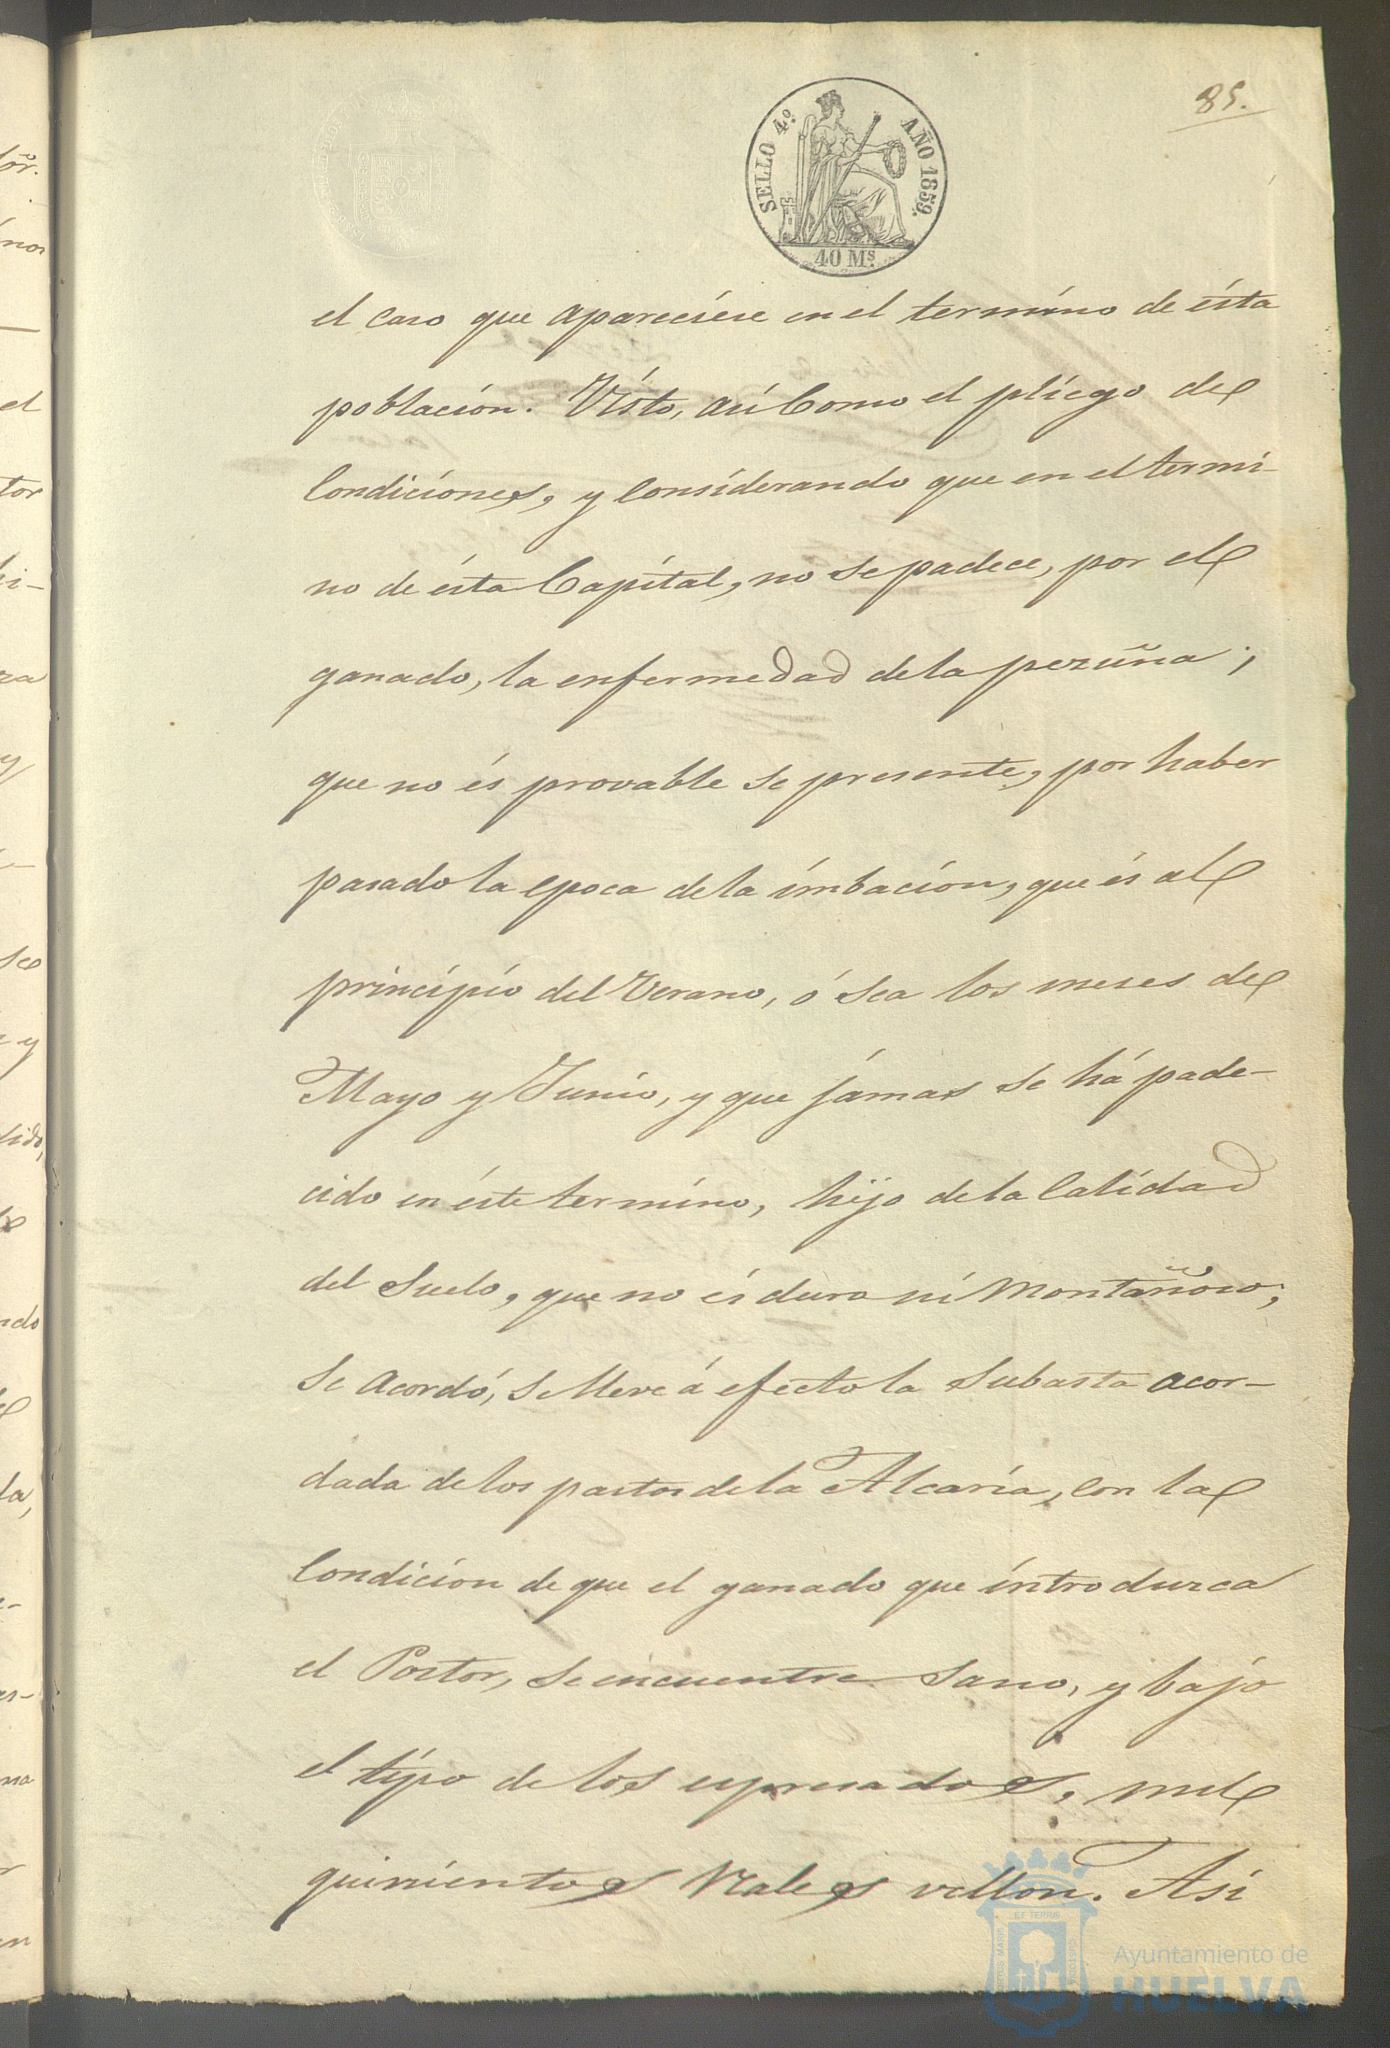 85.
SELLO 4.º AÑO 1859.
40 Ms.
el caso que apareciese en el termíno de ésta
población. Visto, así Como el plíego de
Condiciones, y Considerando que en el termi-
no de ésta Capítal, no se padece, por el
ganado, la enfermedad de la pezuña;
que no és provable se presente, por haber
pasado la epoca de la imbación, que és al
principio del Verano, ó sea los meses de
Mayo y Junio, y que jámas se há pade-
cido en éste termíno, hijo de la Calidad
del Suelo, que no és duro ni Montañoso;
Se acordó, se lleve á efecto la Subasta acor-
dada de los pastos de la Alcaría, con la
Condición de que el ganado que introduzca
el Postor, se encuentre Sano, y bajo
el típo de los espresados, mil
quinientos Reales vellon. Así
Ayuntamiento de
HUELVA